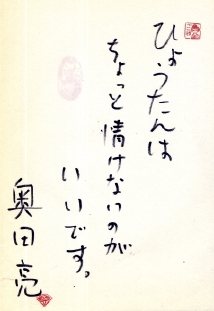 ひょうたんは
ちょっと情けないのが
いいです。
奥田亮